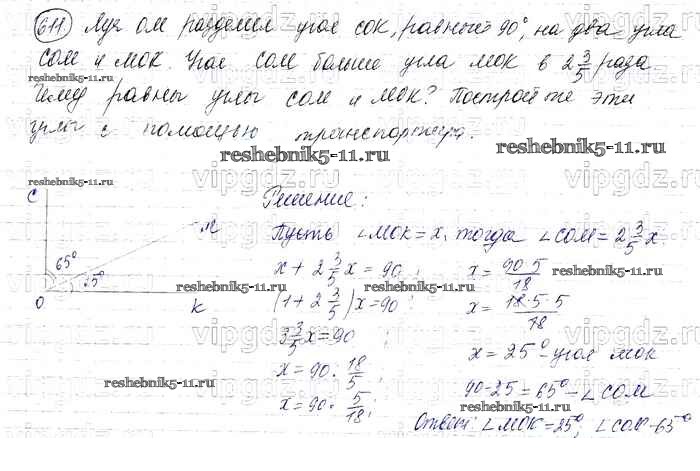 611 Луч ОМ разделил угол СОК, равный 90°, на два угла
СОМ и МОК. Угол СОМ больше угла МОК в 2 3/5 раза
Чему равны углы СОМ и МОК? Постройте эти
углы с помощью транспортира.
reshebnik5-11.ru
Решение:
Пусть ∠МОК = x, тогда ∠СОМ = 2 3/5 x.
C
M
65°
25°
O
K
x + 2 3/5 x = 90
(1 + 2 3/5) x = 90
3 3/5 x = 90
x = 90 : 18/5
x = 90 · 5/18
x = 90·5/18
x = 18·5·5/18
x = 25° - угол МОК
90-25 = 65° - ∠СОМ
Ответ: ∠МОК = 25°, ∠СОМ - 65°
reshebnik5-11.ru
reshebnik5-11.ru
reshebnik5-11.ru
reshebnik5-11.ru
reshebnik5-11.ru
reshebnik5-11.ru
vipgdz.ru